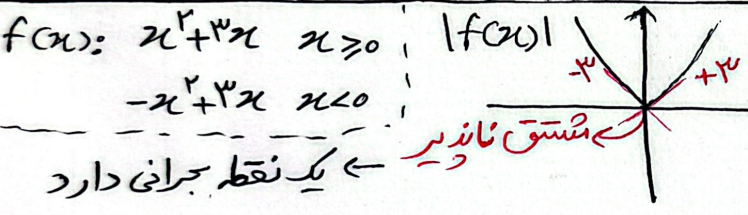 f(x): x²+۳x   x≥۰
-x²+۳x   x<۰
|f(x)|
-۳
+۳
مشتق ناپذیر
← یک نقطه بحرانی دارد